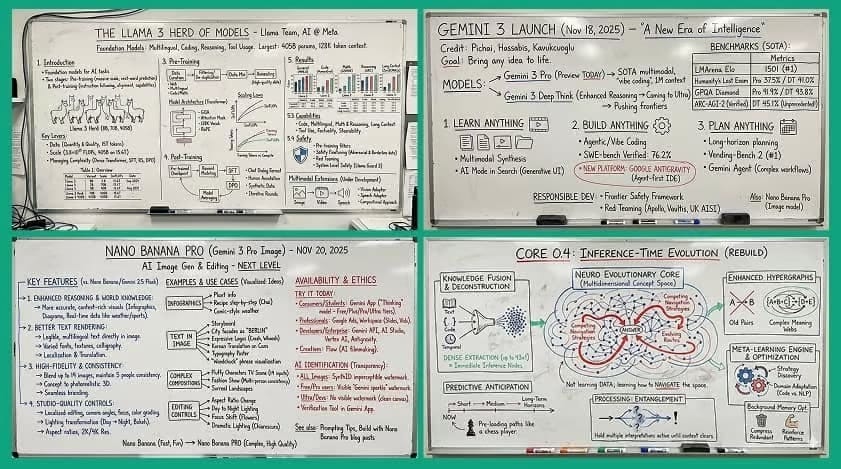 THE LLAMA 3 HERD OF MODELS - Llama Team, AI @ Meta
Foundation Models: Multilingual, Coding, Reasoning, Tool Usage. Largest: 405B params, 128K token context.
1. Introduction
• Foundation models for AI tasks
Llama 3 Herd (8B, 70B, 405B)
Key Levers
• Managing Complexity (Dense Transformer, SFT, RS, DPO)
Table 1: Overview
3. Pre-Training
Data Mix
Annealing
Model Architecture (Transformer)
Scaling Laws
4. Post-Training
Pre-trained Checkpoint
Reward Modeling
SFT
DPO
Model Averaging
• Chat Dialog Format
• Human Annotation
• Synthetic Data
• Iterative Rounds
5. Results
• Code, Multilingual, Math & Reasoning, Long Context
• Tool Use, Factuality, Steerability
5.4 Safety
• Pre-training Filters
• Red Teaming
• System Level Safety (Llama Guard 3)
Multimodal Extensions (Under Development)
Image
Video
Speech
• Vision Adapter
• Speech Adapter
• Compositional Approach
GEMINI 3 LAUNCH (Nov 18, 2025) – "A New Era of Intelligence"
Credit: Pichai, Hassabis, Kavukcuoglu
Goal: Bring any idea to life.
MODELS:
Gemini 3 Pro (Preview TODAY) → SOTA multimodal,
"vibe coding", 1M context
Gemini 3 Deep Think (Enhanced Reasoning → Coming to Ultra)
→ Pushing frontiers
BENCHMARKS (SOTA):
Metrics
LMArena Elo 1501 (#1)
Humanity's Last Exam Pro 37.5% / DT 41.0%
GPQA Diamond Pro 91.9% / DT 93.8%
ARC-AGI-2 (Verified) DT 45.1% (Unprecedented!)
1. LEARN ANYTHING
• Multimodal Synthesis
• AI Mode in Search (Generative UI)
2. BUILD ANYTHING
• Agentic/Vibe Coding
• SWE-bench Verified: 76.2%
• NEW PLATFORM: GOOGLE ANTIGRAVITY
(Agent-first IDE)
3. PLAN ANYTHING
• Long-horizon planning
• Vending-Bench 2 (#1)
• Gemini Agent (Complex workflows)
RESPONSIBLE DEV: • Frontier Safety Framework
• Red Teaming (Apollo, Vaultis, UK AISI)
Also: Nano Banana Pro
(Image model)
NANO BANANA PRO (Gemini 3 Pro Image) - NOV 20, 2025
AI Image Gen & Editing - NEXT LEVEL
KEY FEATURES (vs. Nano Banana/Gemini 2.5 Flash)
1. ENHANCED REASONING & WORLD KNOWLEDGE:
→ More accurate, context-rich visuals (Infographics,
Diagrams, Real-time data like weather/sports).
2. BETTER TEXT RENDERING:
→ Legible, multilingual text directly in image.
→ Varied fonts, textures, calligraphy.
→ Localization & Translation.
3. HIGH-FIDELITY & CONSISTENCY:
→ Blend up to 14 images, maintain 5 people consistency.
→ Concept to photorealistic 3D.
→ Seamless branding.
4. STUDIO-QUALITY CONTROLS:
→ Localized editing, camera angles, focus, color grading.
→ Lighting transformation (Day → Night, Bokeh).
→ Aspect ratios, 2K/4K Res.
EXAMPLES & USE CASES (Visualized Ideas)
INFOGRAPHICS
• Plant info
• Recipe step-by-step (Chai)
• Comic-style weather
TEXT IN IMAGE
• Storyboard
• City facades as "BERLIN"
• Expressive Logos
• Korean Translation on Cans
• Typography Poster
• "Woodchuck" phrase visualization
COMPLEX COMPOSITIONS
• Fluffy Characters TV Scene (14 inputs)
• Fashion Show (Multi-person consistency)
• Surreal Landscapes
EDITING CONTROLS
• Aspect Ratio Change
• Day to Night Lighting
• Focus Shift (Flowers)
• Dramatic Lighting (Chiaroscuro)
AVAILABILITY & ETHICS
TRY IT TODAY:
• Consumers/Students: Gemini App ("Thinking"
model - Free/Plus/Pro/Ultra tiers).
• Professionals: Google Ads, Workspace (Slides, Vids).
• Developers/Enterprise: Gemini API, AI Studio,
Vertex AI, Antigravity.
• Creatives: Flow (AI filmmaking).
AI IDENTIFICATION (Transparency):
• ALL Images: SynthID imperceptible watermark.
• Free/Pro users: Visible "Gemini sparkle" watermark.
• Ultra/Devs: No visible watermark (clean canvas).
• Verification Tool in Gemini App.
Nano Banana (Fast, Fun) → Nano Banana PRO (Complex, High Quality)
See also: Prompting Tips, Build with Nano
Banana Pro blog posts
CORE 0.4: INFERENCE-TIME EVOLUTION (REBUILD)
KNOWLEDGE FUSION
& DECONSTRUCTION
Text
Temporal
→ Immediate Inference Nodes
NEURO EVOLUTIONARY CORE
(Multidimensional Concept Space)
Competing
Navigation
Strategies
ANSWER
Evolving
Routes
Not learning DATA; learning how to NAVIGATE the space.
PREDICTIVE ANTICIPATION
Short → Medium
Long-Term
Horizons
NOW
Pre-loading paths like
a chess player.
PROCESSING: ENTANGLEMENT
Hold multiple interpretations active until context clears.
ENHANCED HYPERGRAPHS
A → B
Old Pairs
Complex Meaning
Webs
META-LEARNING ENGINE
& OPTIMIZATION
Strategy
Discovery
Domain Adaptation
(Code vs. NLP)
Background Memory Opt.
Compress
Redundant
Reinforce
Patterns